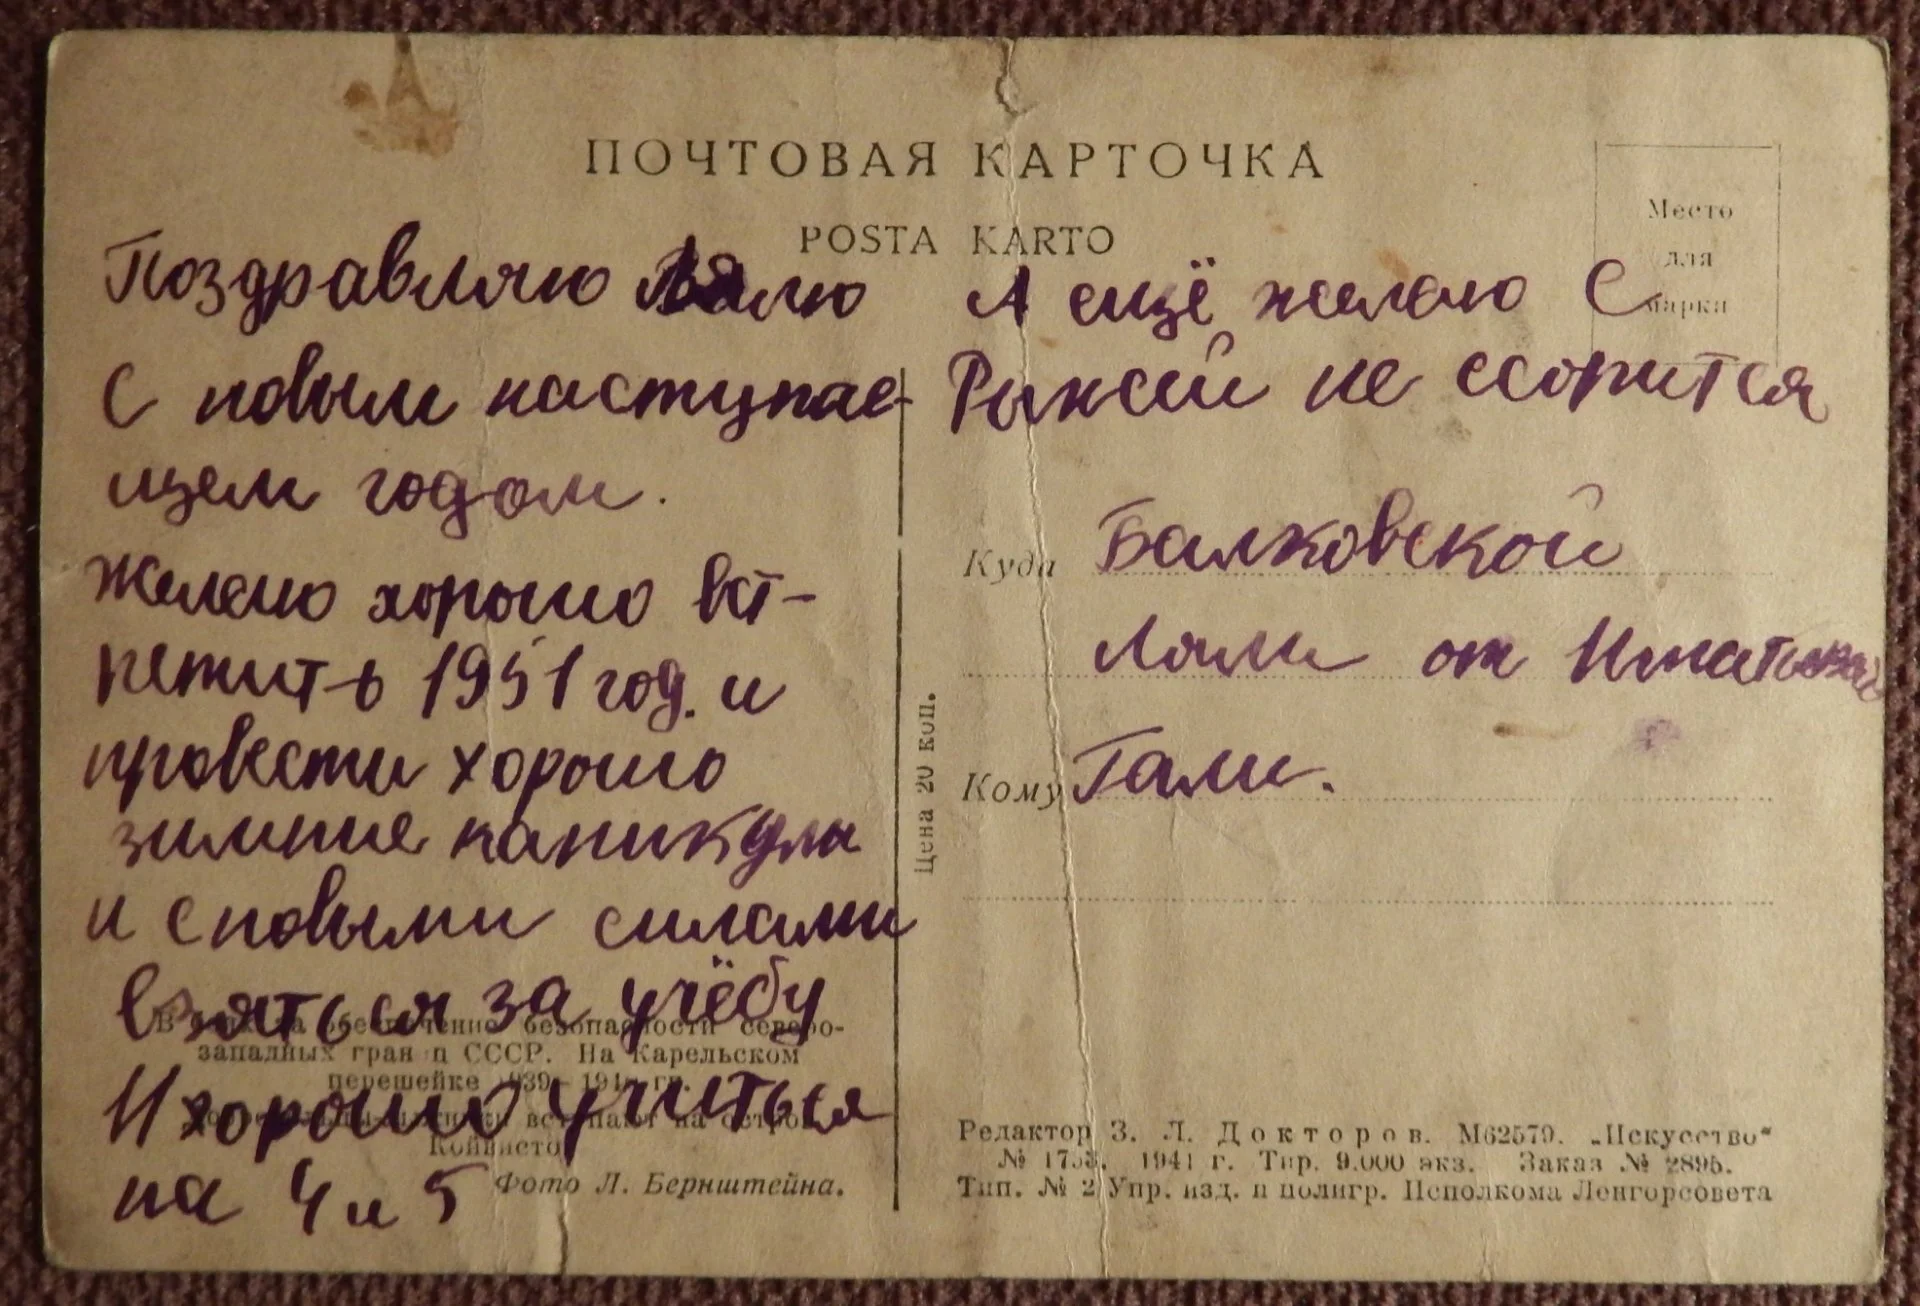 ПОЧТОВАЯ КАРТОЧКА
POSTA KARTO
Место
для
марки
Поздравляю Лялю
С новым наступае-
щем годом.
Желаю хорошо вст-
ретить 1951 год. и
провести хорошо
зимние каникулы
и с новыми силами
взяться за учёбу
И хорошо учиться
на 4 и 5
А ещё желаю С
не ссорится
Куда Балковской
Ляли от
Кому Гали.
Цена 20 коп.
обеспечение безопасности северо-
западных границ СССР. На Карельском
перешейке 1939–1940 гг.
вступают на остров
Койвисто
Фото Л. Бернштейна.
Редактор З. Л. Докторов. М62579. „Искусство“
№ 1941 г. Тир. 9.000 экз. Заказ № 2895.
Тип. № 2 Упр. изд. и полигр. Исполкома Ленгорсовета